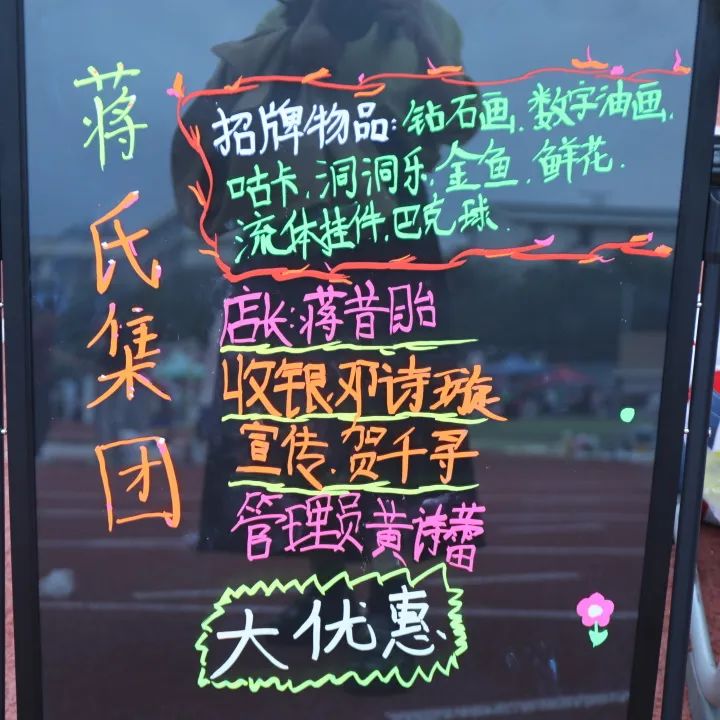 蒋氏集团
招牌物品:钻石画.数字油画.
咕卡.洞洞乐.金鱼.鲜花.
流体挂件.巴克球.
店长:蒋昔眙
收银.邓诗璇
宣传.贺千寻
管理员黄诗蕾
大优惠